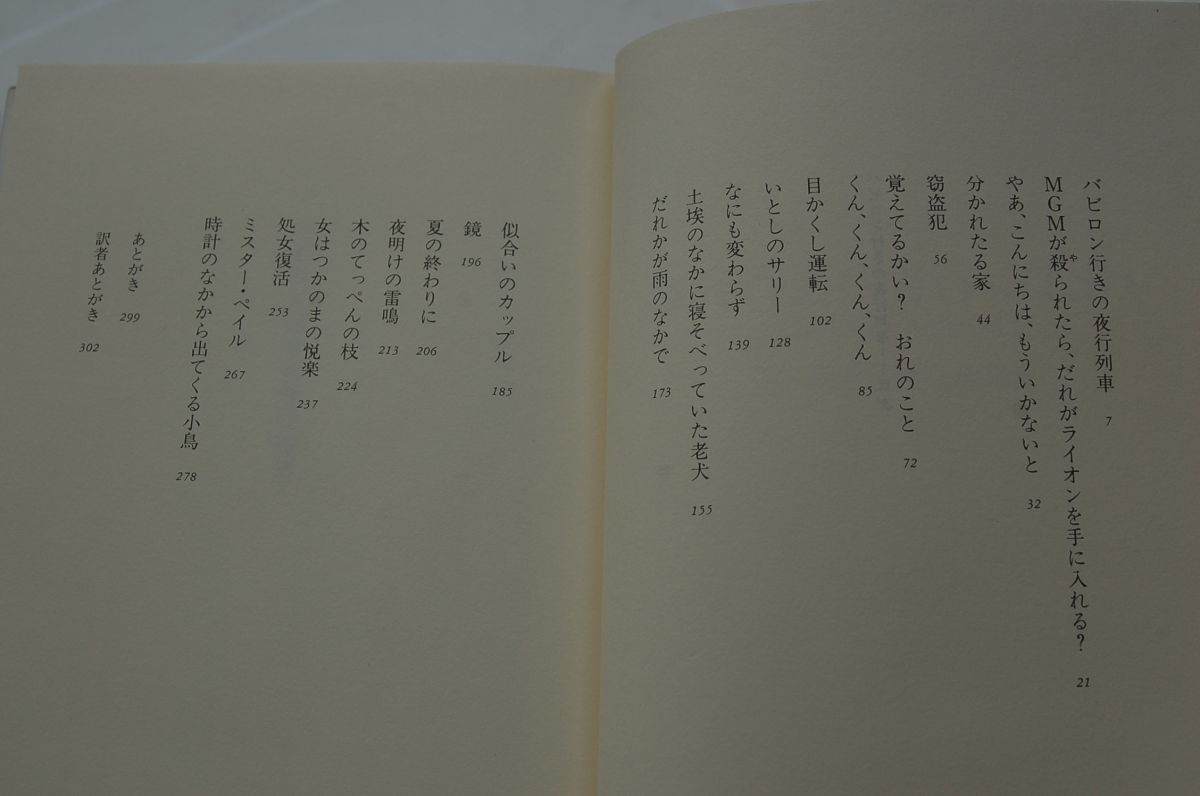 バビロン行きの夜行列車 7
MGMが殺られたら、だれがライオンを手に入れる? 21
や
やあ、こんにちは、もういかないと 32
分かれたる家 44
窃盗犯 56
覚えてるかい? おれのこと 72
くん、くん、くん、くん 85
目かくし運転 102
いとしのサリー 128
なにも変わらず 139
土埃のなかに寝そべっていた老犬 155
だれかが雨のなかで 173
似合いのカップル 185
鏡 196
夏の終わりに 206
夜明けの雷鳴 213
木のてっぺんの枝 224
女はつかのまの悦楽 237
処女復活 253
ミスター・ペイル 267
時計のなかから出てくる小鳥 278
あとがき 299
訳者あとがき 302